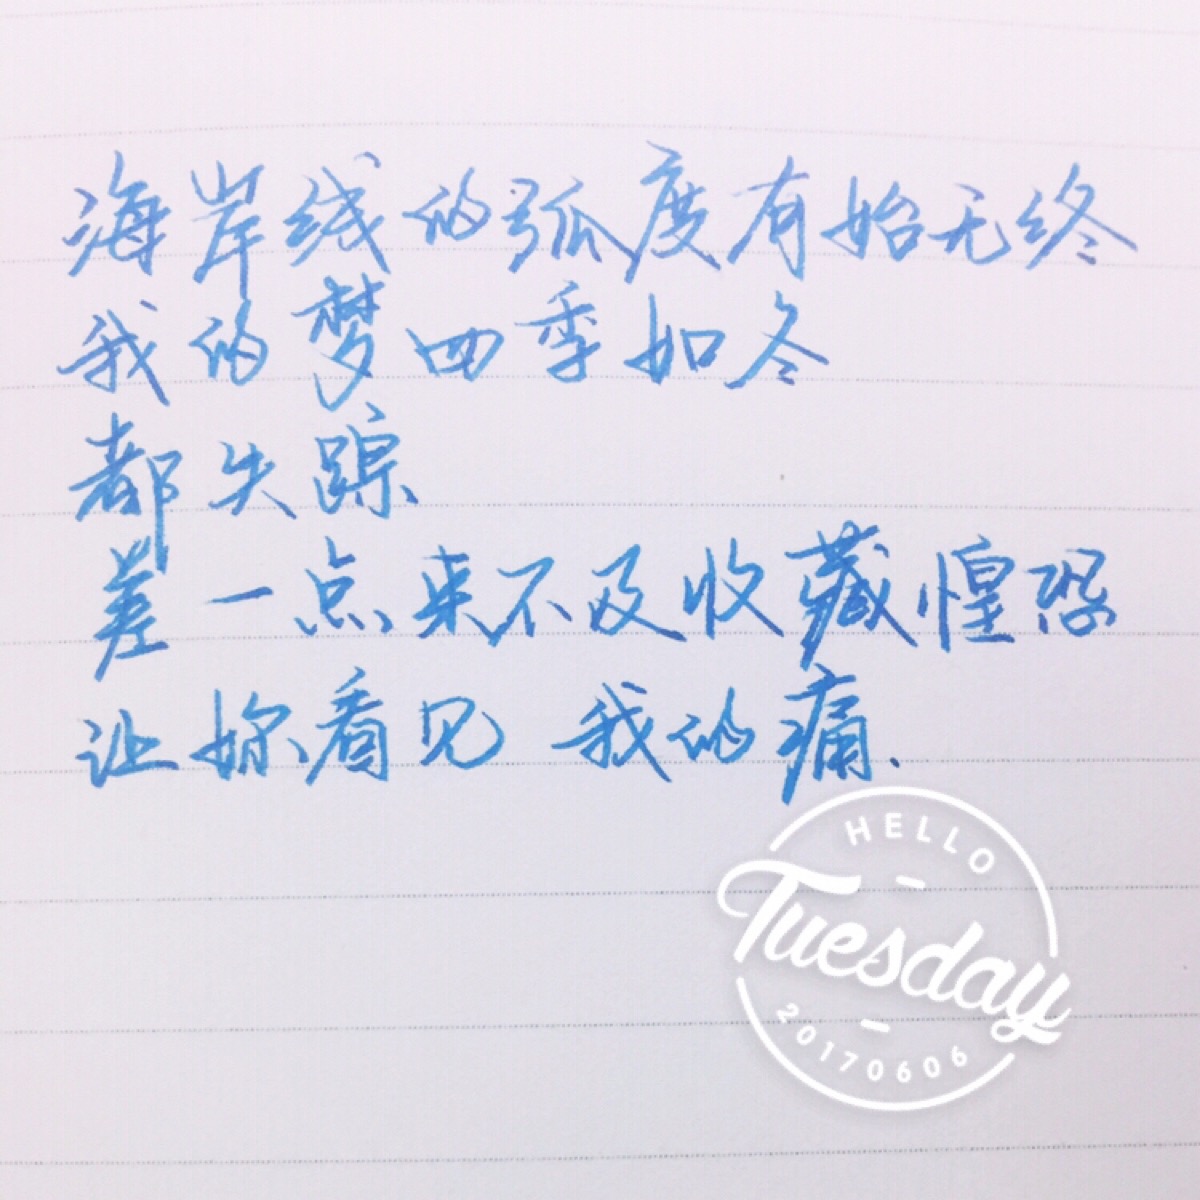 海岸线的弧度有始无终
我的梦四季如冬
都失踪
差一点来不及收藏惶恐
让妳看见 我的痛.
HELLO
Tuesday
20170606